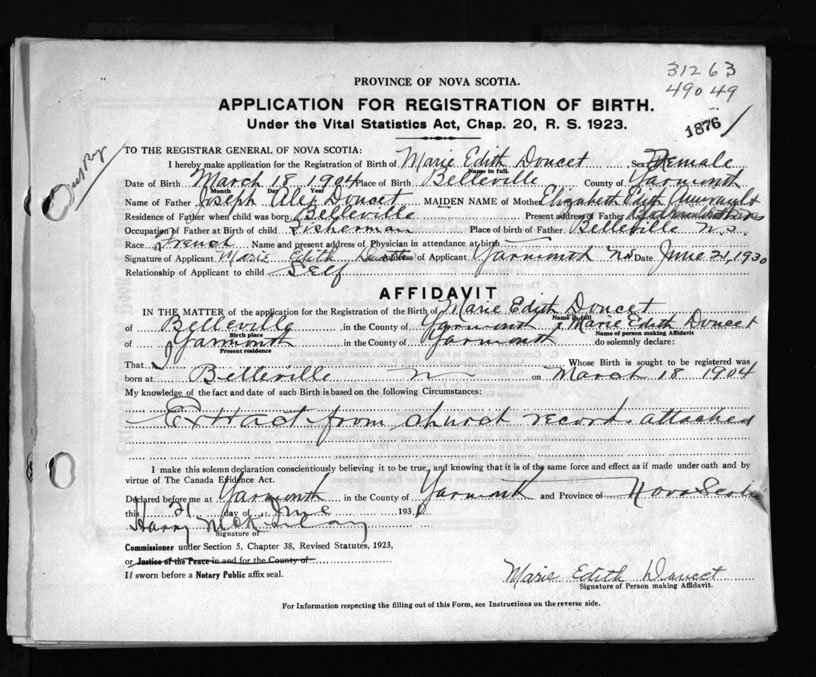 31263
49049
1876
PROVINCE OF NOVA SCOTIA.
APPLICATION FOR REGISTRATION OF BIRTH.
Under the Vital Statistics Act, Chap. 20, R. S. 1923.
TO THE REGISTRAR GENERAL OF NOVA SCOTIA:
I hereby make application for the Registration of Birth of Marie Edith Doucet Sex Female
Name in full.
Date of Birth March 18 1904 Place of Birth Belleville County of Yarmouth
Month Day Year
Name of Father Joseph Alex Doucet MAIDEN NAME of Mother Elizabeth Edith
Residence of Father when child was born, Belleville Present address of Father
Occupation of Father at Birth of child Fisherman Place of birth of Father Belleville N.S.
Race French Name and present address of Physician in attendance at birth
Signature of Applicant Marie Edith Doucet Address of Applicant Yarmouth NS Date June 21, 1930
Relationship of Applicant to child Self
AFFIDAVIT
IN THE MATTER of the application for the Registration of the Birth of Marie Edith Doucet
Name in full
of Belleville in the County of Yarmouth I, Marie Edith Doucet
Birth place Name of person making Affidavit
of Yarmouth in the County of Yarmouth do solemnly declare:
Present residence
That I Whose Birth is sought to be registered was
born at Belleville on March 18 1904
My knowledge of the fact and date of such Birth is based on the following Circumstances:
Extract from church record attached
I make this solemn declaration conscientiously believing it to be true, and knowing that it is of the same force and effect as if made under oath and by
virtue of The Canada Evidence Act.
Declared before me at Yarmouth in the County of Yarmouth and Province of Nova Scotia
this 21 day of June 1930
Harry McKinlay
Signature of
Commissioner under Section 5, Chapter 38, Revised Statutes, 1923,
or Justice of the Peace in and for the County of
If sworn before a Notary Public affix seal.
Marie Edith Doucet
Signature of Person making Affidavit.
For Information respecting the filling out of this Form, see Instructions on the reverse side.